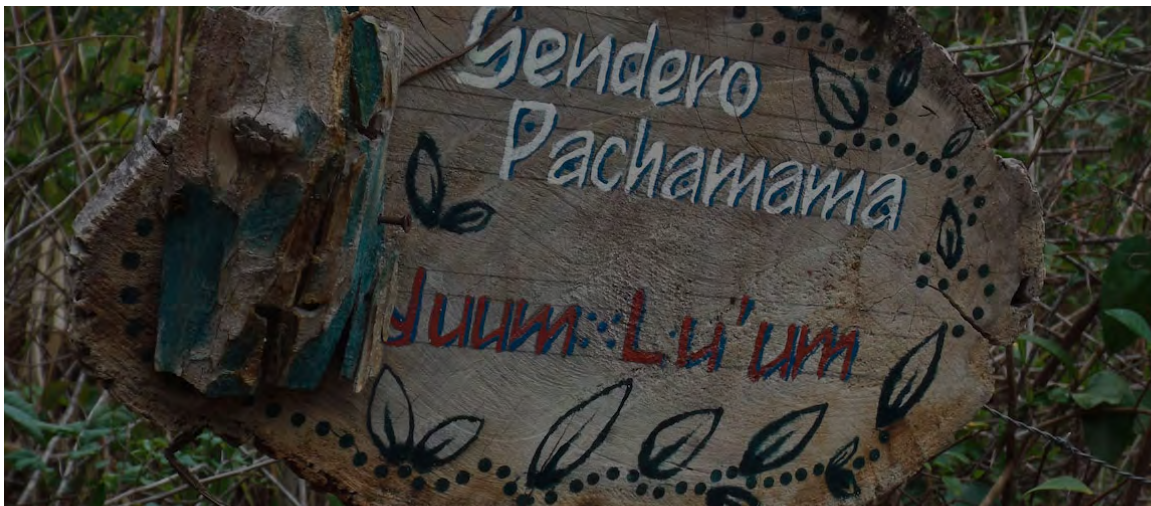 Sendero
Pachamama
Yuum Lu'um